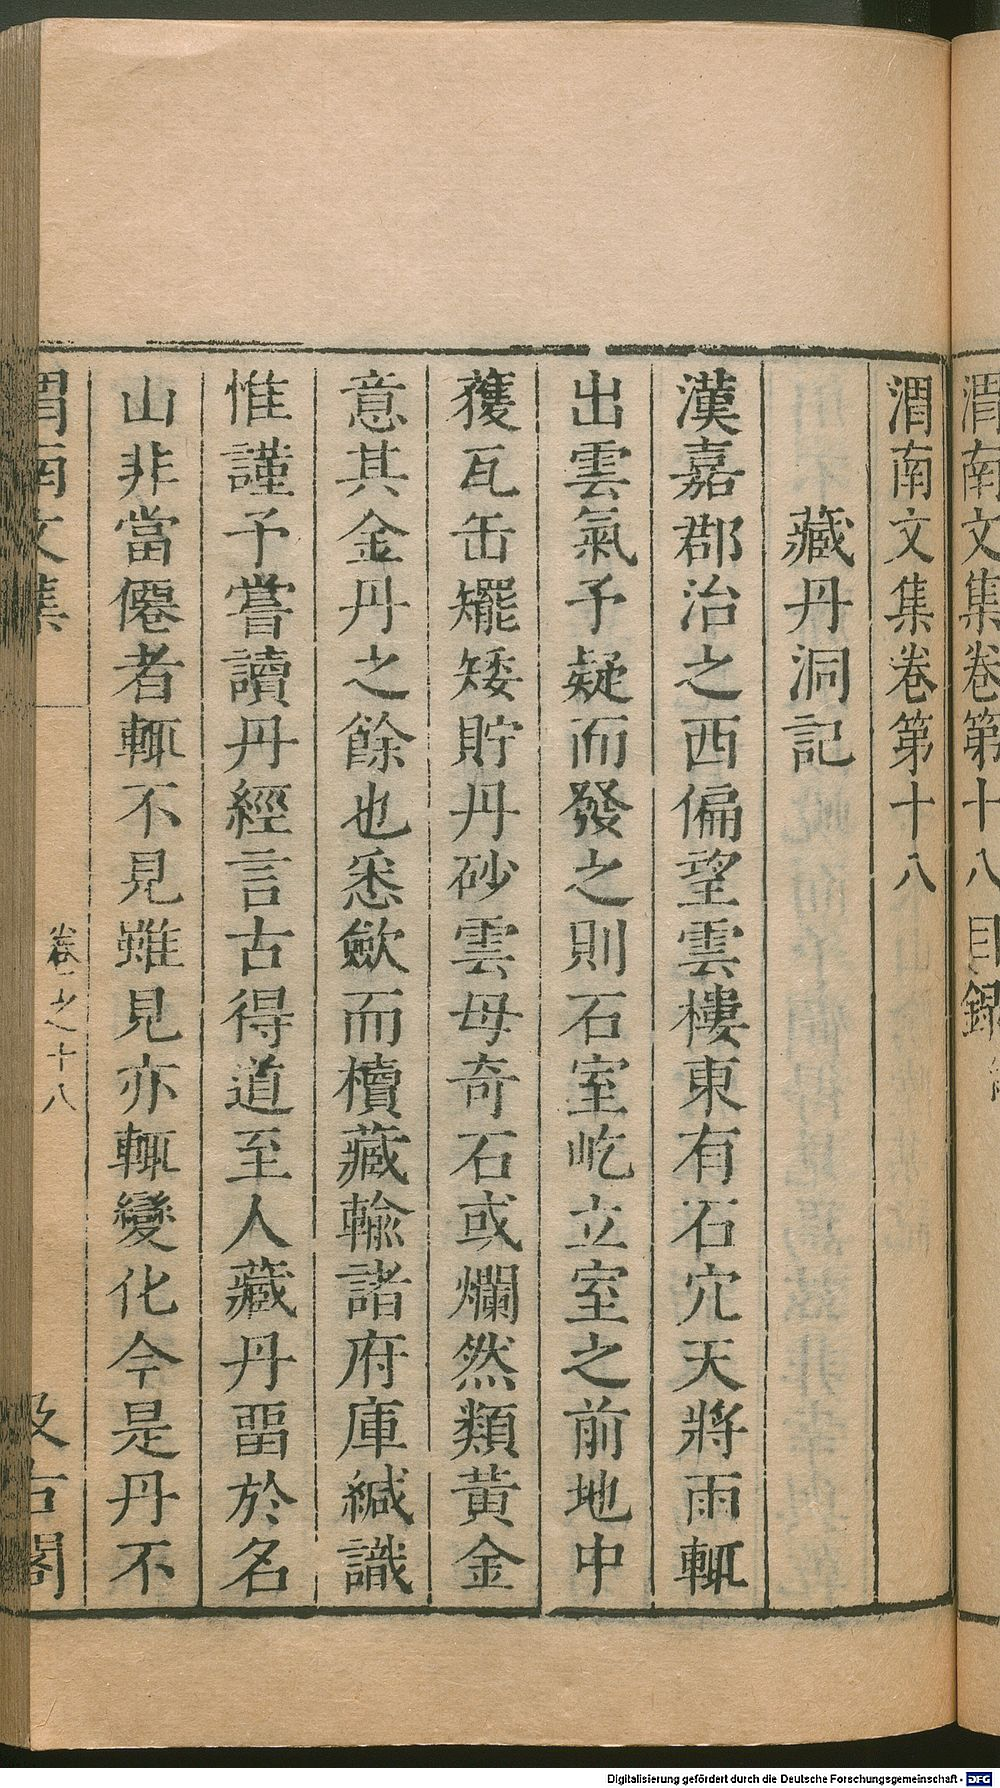 渭南文集卷第十八目錄
渭南文集卷第十八
藏丹洞記
漢嘉郡治之西偏望雲樓東有石穴天將雨輒
出雲氣予疑而發之則石室屹立室之前地中
獲瓦缶䎱矮貯丹砂雲母奇石或爛然類黃金
意其金丹之餘也悉斂而櫝藏輸諸府庫緘識
惟謹予嘗讀丹經言古得道至人藏丹畱於名
山非當僊者輒不見雖見亦輒變化今是丹不
渭南文集
卷之十八
汲古閣
Digitalisierung gefördert durch die Deutsche Forschungsgemeinschaft - DFG